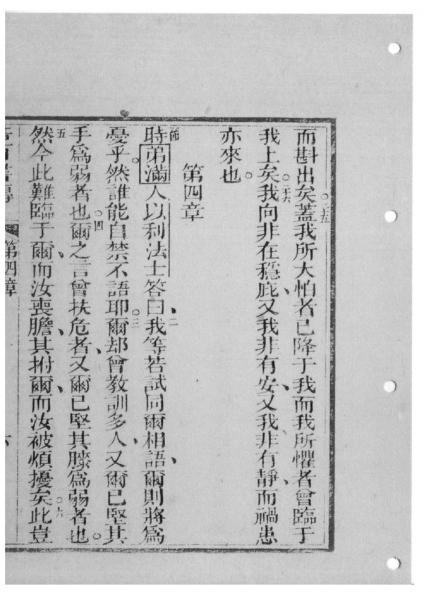 而斟出矣蓋我所大怕者已降于我而我所懼者會臨于
二五
我上矣我向非在穩庇又我非有安又我非有靜而禍患
二六
亦來也
第四章
節
時弟滿人以利法士答曰我等若試同爾相語爾則將為
二
憂乎然誰能自禁不語耶爾却曾教訓多人又爾已堅其
三
手為弱者也爾之言曾扶危者又爾已堅其膝為弱者也
四
五
然今此難臨于爾而汝喪膽其拊爾而汝被煩擾矣此豈
六
第四章